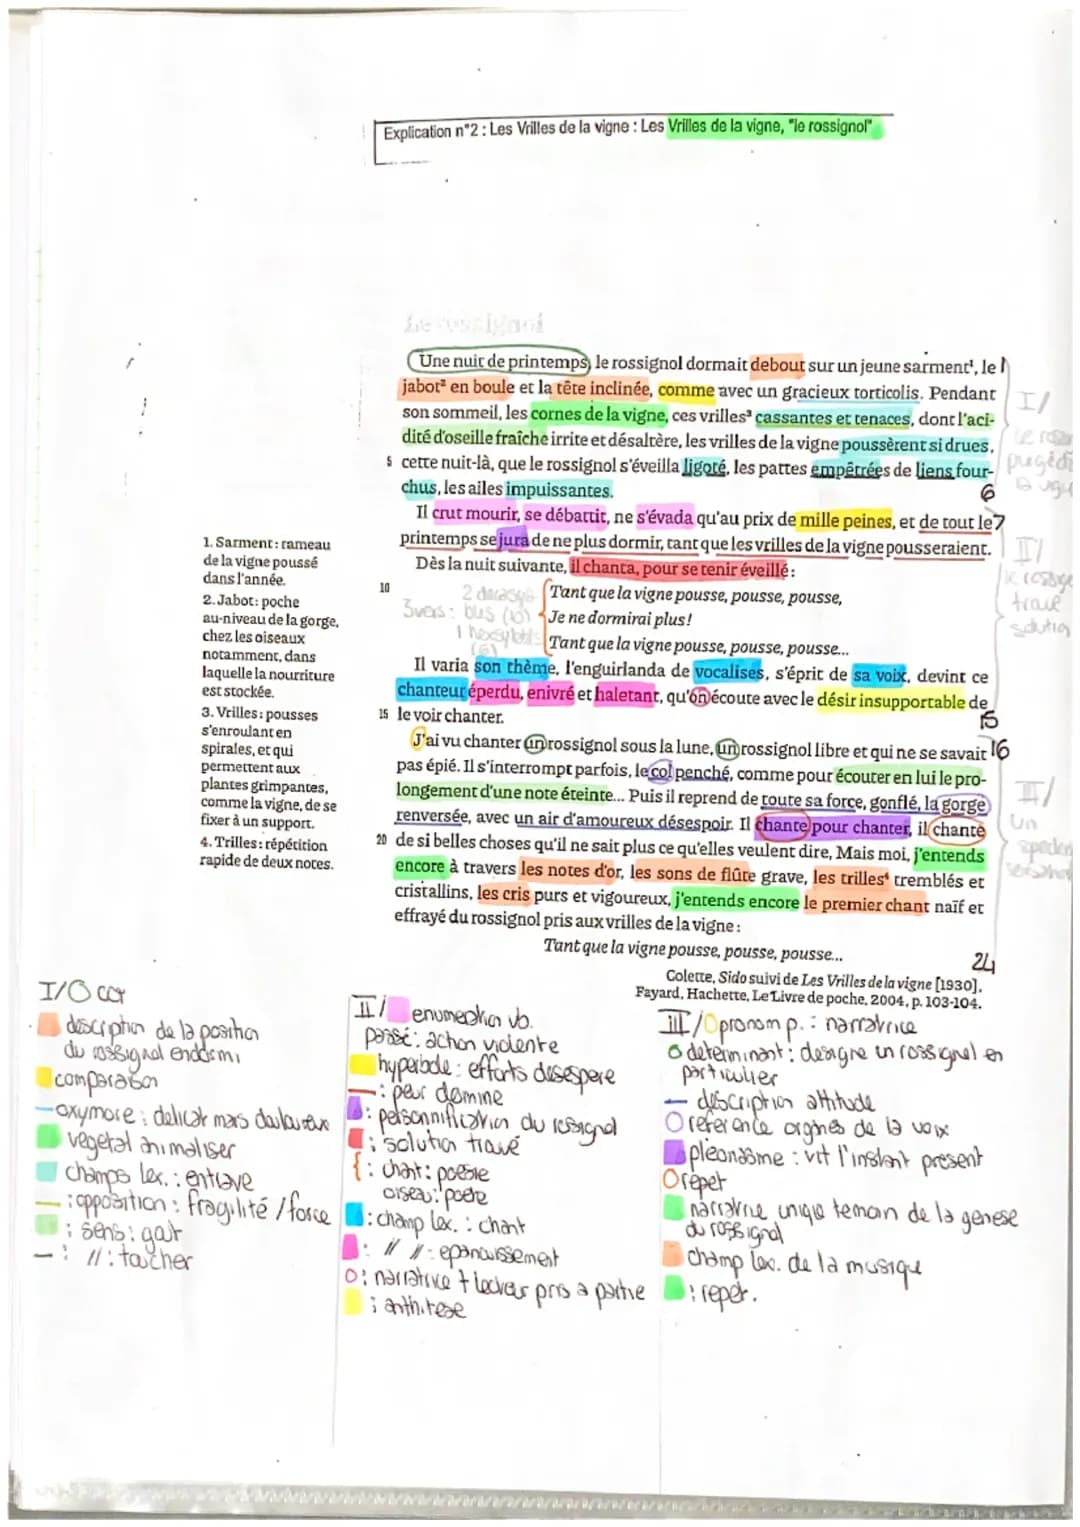 Explication n°2 : Les Vrilles de la vigne : Les Vrilles de la vigne, "le rossignol"
Le rossignol
Une nuit de printemps, le rossignol dormait debout sur un jeune sarment¹, le
jabot² en boule et la tête inclinée, comme avec un gracieux torticolis. Pendant
son sommeil, les cornes de la vigne, ces vrilles³ cassantes et tenaces, dont l'aci-
dité d'oseille fraîche irrite et désaltère, les vrilles de la vigne poussèrent si drues,
5 cette nuit-là, que le rossignol s'éveilla ligoté, les pattes empêtrées de liens four-
chus, les ailes impuissantes.
6
Il crut mourir, se débattit, ne s'évada qu'au prix de mille peines, et de tout le 7
printemps se jura de ne plus dormir, tant que les vrilles de la vigne pousseraient.
Dès la nuit suivante, il chanta, pour se tenir éveillé :
10 Tant que la vigne pousse, pousse, pousse,
Je ne dormirai plus!
Tant que la vigne pousse, pousse, pousse...
Il varia son thème, l'enguirlanda de vocalises, s'éprit de sa voix, devint ce
chanteur éperdu, enivré et haletant, qu'on écoute avec le désir insupportable de
15 le voir chanter.
15
J'ai vu chanter un rossignol sous la lune, un rossignol libre et qui ne se savait 16
pas épié. Il s'interrompt parfois, le col penché, comme pour écouter en lui le pro-
longement d'une note éteinte... Puis il reprend de toute sa force, gonflé, la gorge
renversée, avec un air d'amoureux désespoir. Il chante pour chanter, il chante
20 de si belles choses qu'il ne sait plus ce qu'elles veulent dire, Mais moi, j'entends
encore à travers les notes d'or, les sons de flûte grave, les trilles⁴ tremblés et
cristallins, les cris purs et vigoureux, j'entends encore le premier chant naïf et
effrayé du rossignol pris aux vrilles de la vigne :
Tant que la vigne pousse, pousse, pousse...
24
Colette, Sido suivi de Les Vrilles de la vigne [1930],
Fayard, Hachette, Le Livre de poche, 2004, p. 103-104.
1. Sarment : rameau
de la vigne poussé
dans l'année.
2. Jabot : poche
au-niveau de la gorge,
chez les oiseaux
notamment, dans
laquelle la nourriture
est stockée.
3. Vrilles : pousses
s'enroulant en
spirales, et qui
permettent aux
plantes grimpantes,
comme la vigne, de se
fixer à un support.
4. Trilles : répétition
rapide de deux notes.
3 vers :
I/
II/
trouve
solution
III/
Un
I/ CCT
description de la position
du rossignol endormi
comparaison
oxymore : délicat mais douloureux
vegetal animaliser
champs lex. : entrave
: opposition : fragilité / force
: sens : gout
: // : toucher
II/ enumeration vb.
passé : action violente
hyperbole : efforts désespéré
: peur domine
: personnification du rossignol
: solution trouvé
{ : chant : poésie
oiseau : poète
: champ lex. : chant
: // // : epanouissement
: narratrice + lecteur pris a partie
: antithèse
III/ pronom p. : narratrice
determinant : designe un rossignol en
particulier
description attitude
réference organes de la voix
pleonasme : vit l'instant present
repet
narratrice unique temoin de la genese
du rossignol
champ lex. de la musique
: repet.